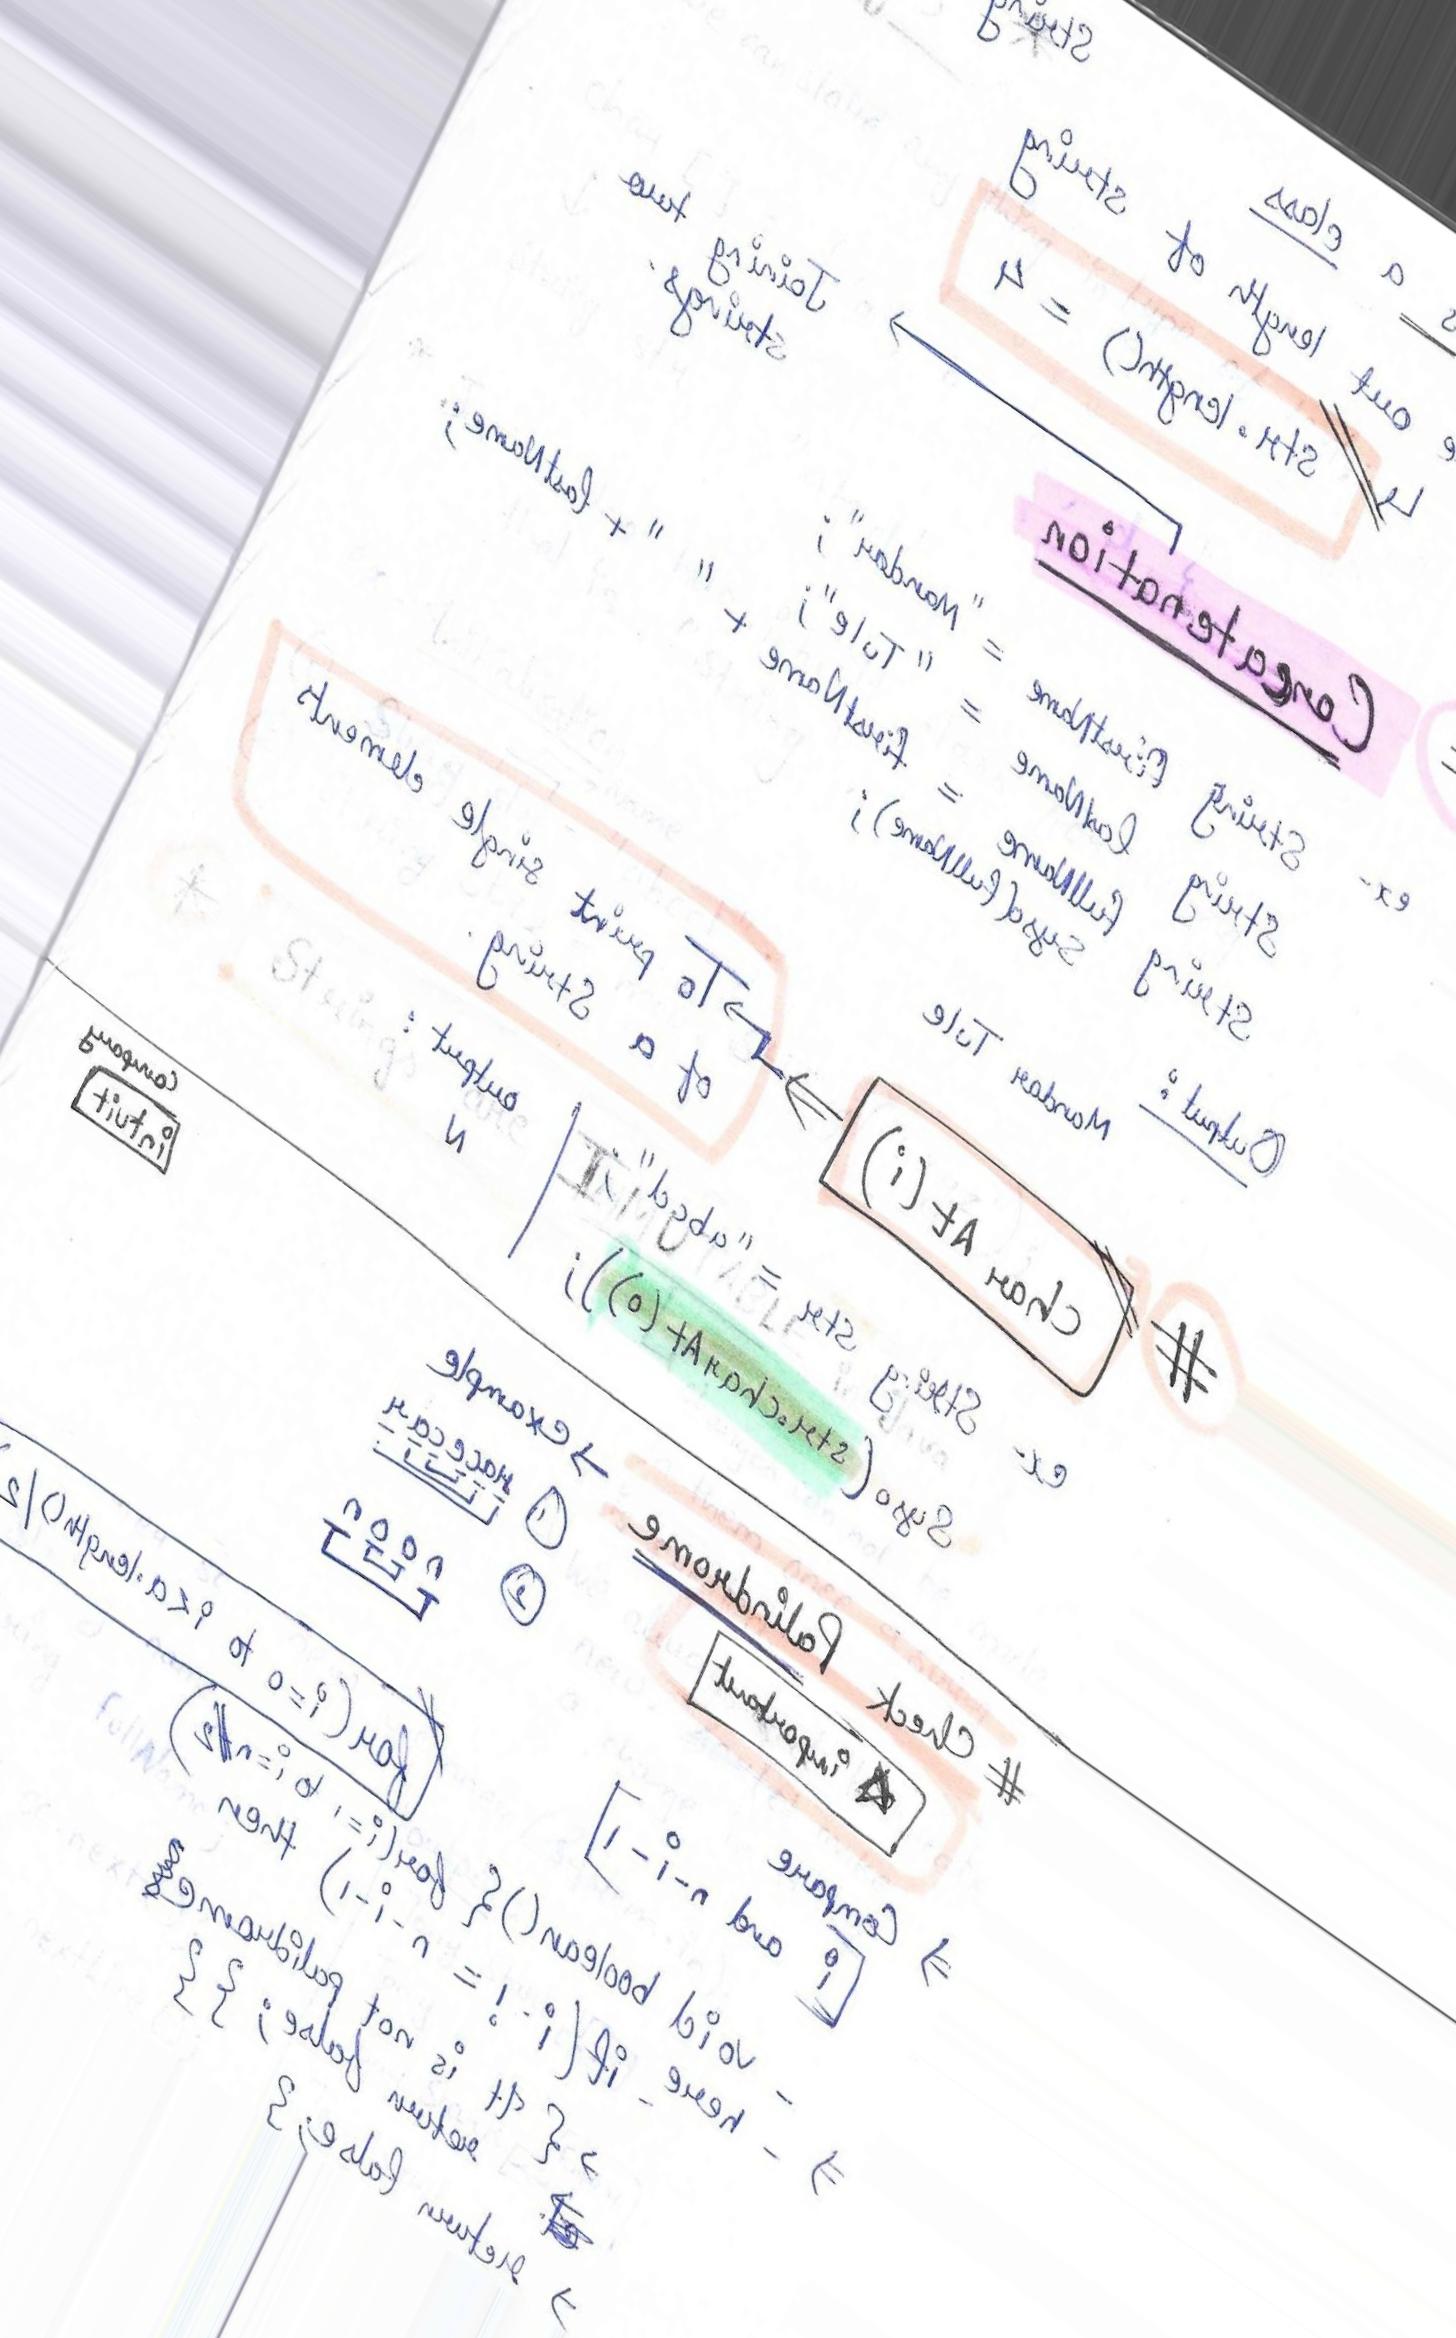 String
a class
out length of string
str.length() = 4
Concatenation
Joining two
strings.
ex- String firstName = "Mandar";
String lastName = "Tule";
String fullName = firstName + " " + lastName;
Syso(fullName);
Output: Mandar Tule
# char At (i)
To print single elements
of a String.
ex- String str = "abgd";
Syso(str.charAt(0));
output:
Company
intuit
# Check Palindrome
important
→ example
① racecar
② noon
⇒ Compare
[i and n-i-1]
for(i=0 to i<a.length()/2
- void boolean(){ for(i=1 to i=n/2)
⇒ - here - if(i-! = n-i-1) then
> { It is not palidrome
return false; } }
> return false; }